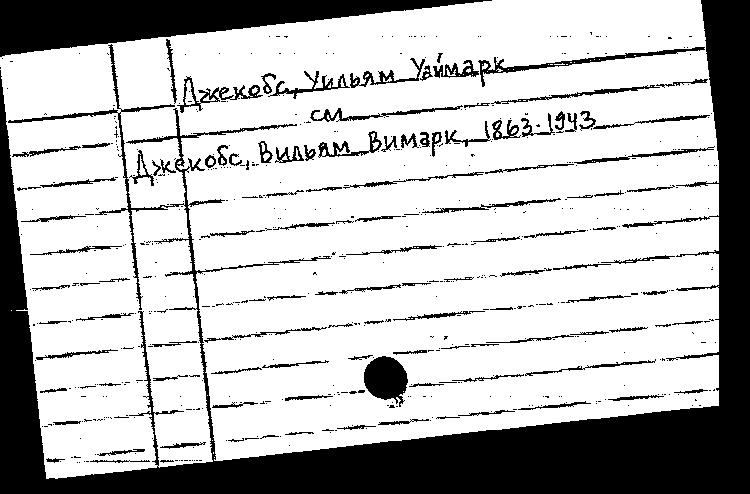 Джекобс, Уильям Уаймарк
см
Джекобс, Вильям Вимарк, 1863-1943